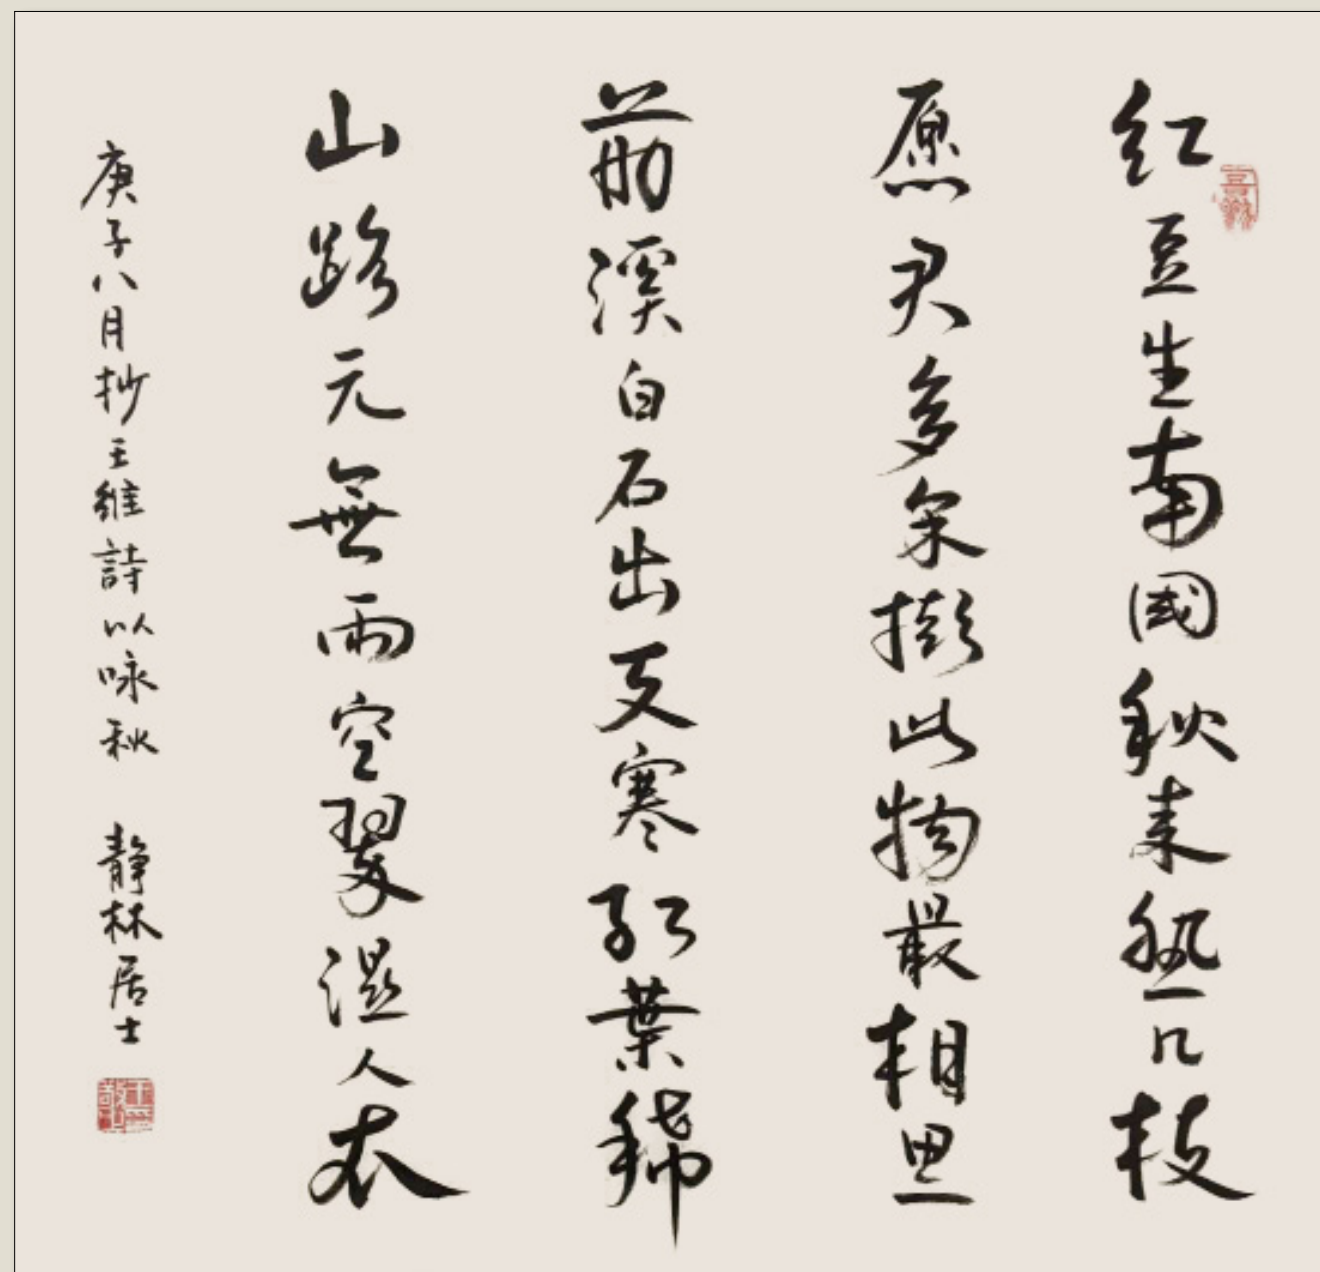 红豆生南國秋来熟几枝
愿君多采擷此物最相思
荊溪白石出天寒红葉稀
山路元無雨空翠濕人衣
庚子八月抄王維詩以咏秋 静林居士